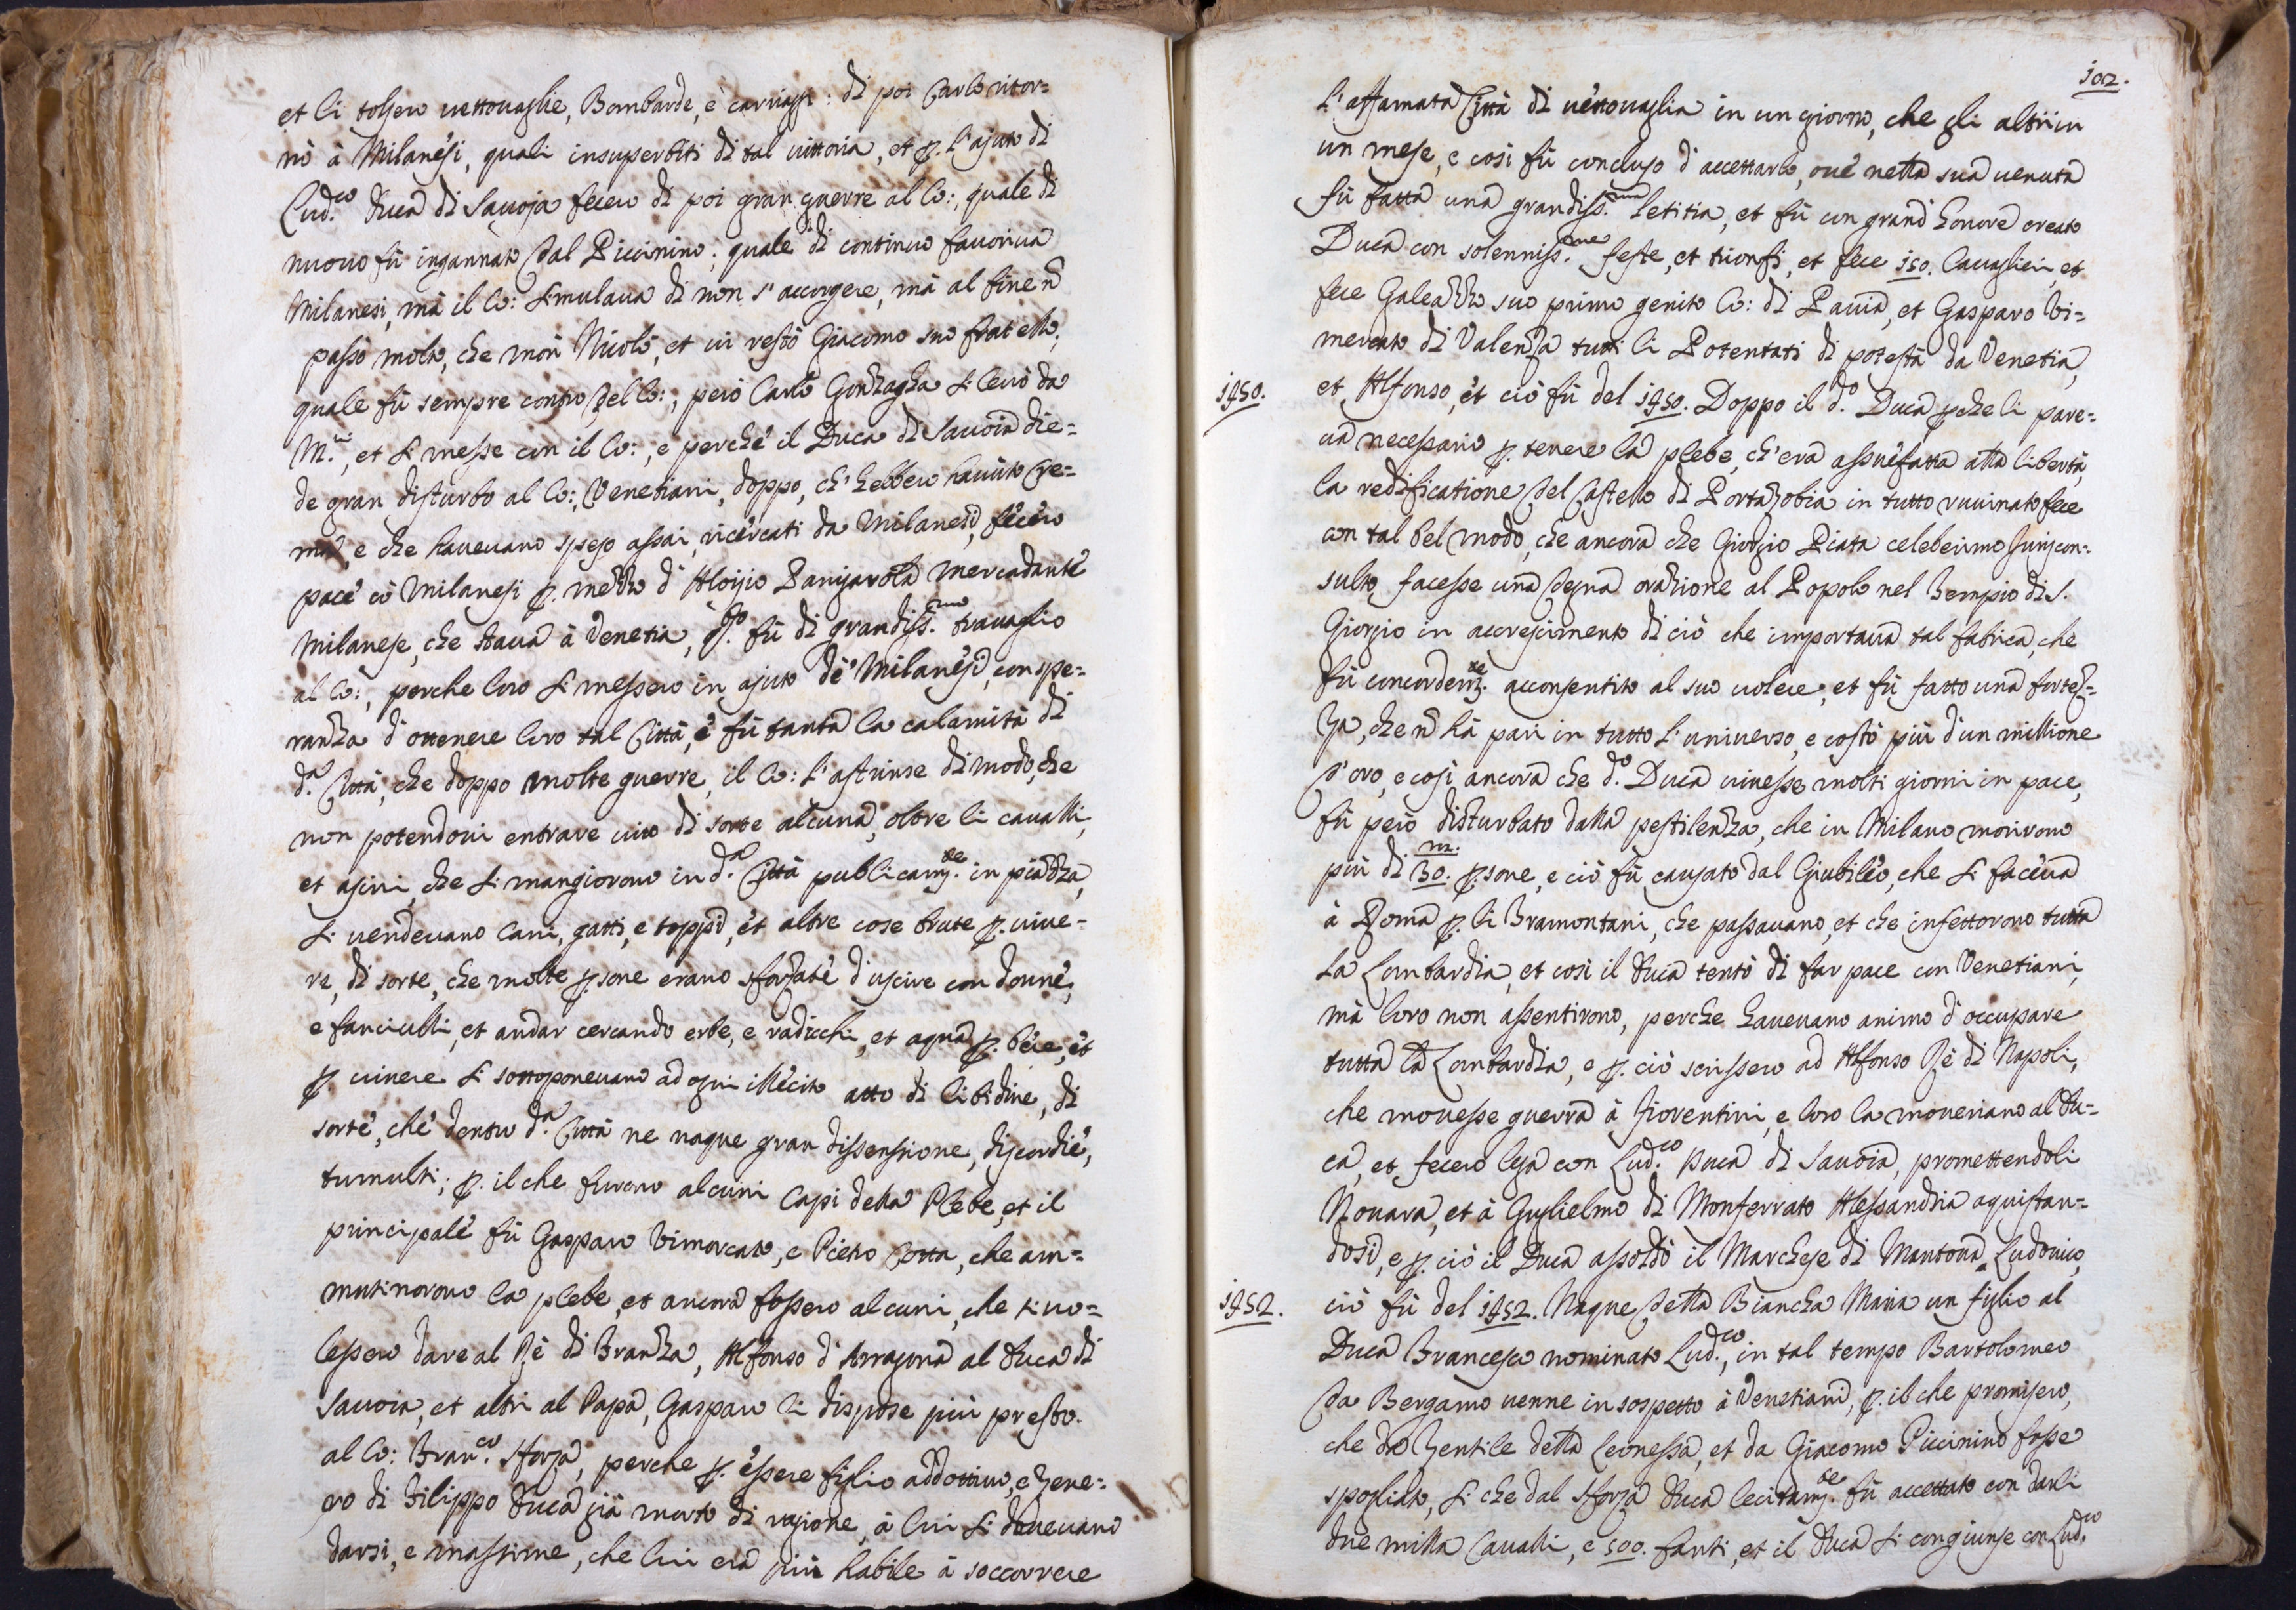 et li tolsero uettouaglie, Bombarde, è carriaggi: di poi Carlo ritor=
nò à Milanesi, quali insuperbiti di tal uittoria, et p. l'ajuto di
Lud.co Duca di Sauoja fecero di poi gran guerre al Co:, quale di
nuouo fù ingannato dal Piccinino; quale di continuo fauoriua
Milanesi, mà il Co: simulaua di non s'accorgere, mà al fine ñ
passò molto, che morì Nicolò, et iui restò Giacomo suo fratello,
quale fù sempre contro del Co:, però Carlo Gonzagha si leuò da
M.ni, et si messe con il Co:, e perché il Duca di Sauoia die=
de gran disturbo al Co:, Venetiani, doppo, ch'hebbero hauuto Cre=
ma, e che haueuano speso assai, ricercati da Milanesi, fecero
pace cõ Milanesi p. mezzo d'Aloisio Panigarola mercadante
Milanese, che staua à Venetia, q.sto fù di grandiss.mo trauaglio
al Co:, perche loro si messero in ajuto de Milanesi, con spe=
ranza d'ottenere loro tal Città, è fù tanta la calamità di
d.a Città, che doppo molte guerre, il Co: l'astrinse di modo, che
non potendoui entrare uiuo di sorte alcuna, oltre li caualli,
et asini, che si mangiorono in d.a Città publicam.te in piazza,
si uendeuano cani, gatti, e toppi, et altre cose brute p. uiue=
re, di sorte, che molte p.sone erano sforzate d'uscire con donne,
e fanciulli, et andar cercando erbe, e radicchi, et aqua p. bere, et
p. uiuere si sottoponeuano ad ogni illécito atto di libidine, di
sorte, che dentro d.a Città ne naque gran dissensione, discordie,
tumulti; p. il che furono alcuni Capi della Plebe, et il
principale fù Gasparo Vimercato, e Pietro Cotta, che am=
mutinorono la plebe, et ancora fossero alcuni, che si uo=
lessero dare al Rè di Franza, Alfonso d'Arragona al Duca di
Sauoia, et altri al Papa, Gasparo li dispose più presto
al Co: Fran.co Sforza, perche p. éssere figlio addottiuo, e Gene=
ro di Filippo Duca già morto di ragione, à lui si doueuano
darsi, e massime, che lui era più habile à soccorrere
102.
l'affamata Città di uettouaglia in un giorno, che gli altri in
un mese, e così fù concluso d'accettarlo, oue nella sua uenuta
fù fatta una grandiss.ma letitia, et fù con grand'honore creato
Duca con solenniss.me feste, et trionfi, et fece 150. Cauaglieri, et
fece Galeazzo suo primo genito Co: di Pauia, et Gasparo Vi=
mercato di Valenza tutti li Potentati di potestà da Venetia,
1450.
et Alfonso, et ciò fù del 1450. Doppo il d.o Duca p.che li pare=
ua necessario p. tenere la plebe, ch'era assuefatta alla libertà,
la redificatione del Castello di Porta Zobia in tutto ruuinato fece
con tal bel modo, che ancora che Giorgio Piata celeberimo Juriscon=
sulto facesse una degna orazione al Popolo nel Tempio di S.
Giorgio in accrescimento di ciò che importaua tal fabrica, che
fù concordem.te acconsentito al suo uolere, et fù fatto una fortez=
za, che ñ hà pari in tutto l'uniuerso, e costò più d'un millione
d'oro, e così ancora che d.o Duca uiuesse molti giorni in pace,
fù però disturbato dalla pestilenza, che in Milano morirono
più di 30.m p.sone, e ciò fù causato dal Giubileo, che si faceua
à Roma p. li Tramontani, che passauano, et che infettorono tutta
la Lombardia, et così il Duca tentò di far pace con Venetiani,
mà loro non assentirono, perche haueuano animo d'occupare
tutta la Lombardia, e p. ciò scrissero ad Alfonso Rè di Napoli,
che mouesse guerra à Fiorentini, e loro la moueriano al Du=
ca, et fecero lega con Lud.co Duca di Sauoia, promettendoli
Nouara, et à Guglielmo di Monferrato Alessandria aquistan=
dosi, e p. ciò il Duca assoldò il Marchese di Mantoua Ludouico,
1452.
ciò fù del 1452. Naque della Biancha Maria un figlio al
Duca Francesco nominato Lud.co, in tal tempo Bartolomeo
da Bergamo uenne in sospetto à Venetiani, p. il che promisero,
che da Gentile della Leonessa, et da Giacomo Piccinino fosse
spogliato, si che dal Sforza Duca lecitam.te fù accettato con darli
due milla Caualli, e 500. fanti, et il Duca si congiunse con Lud.co